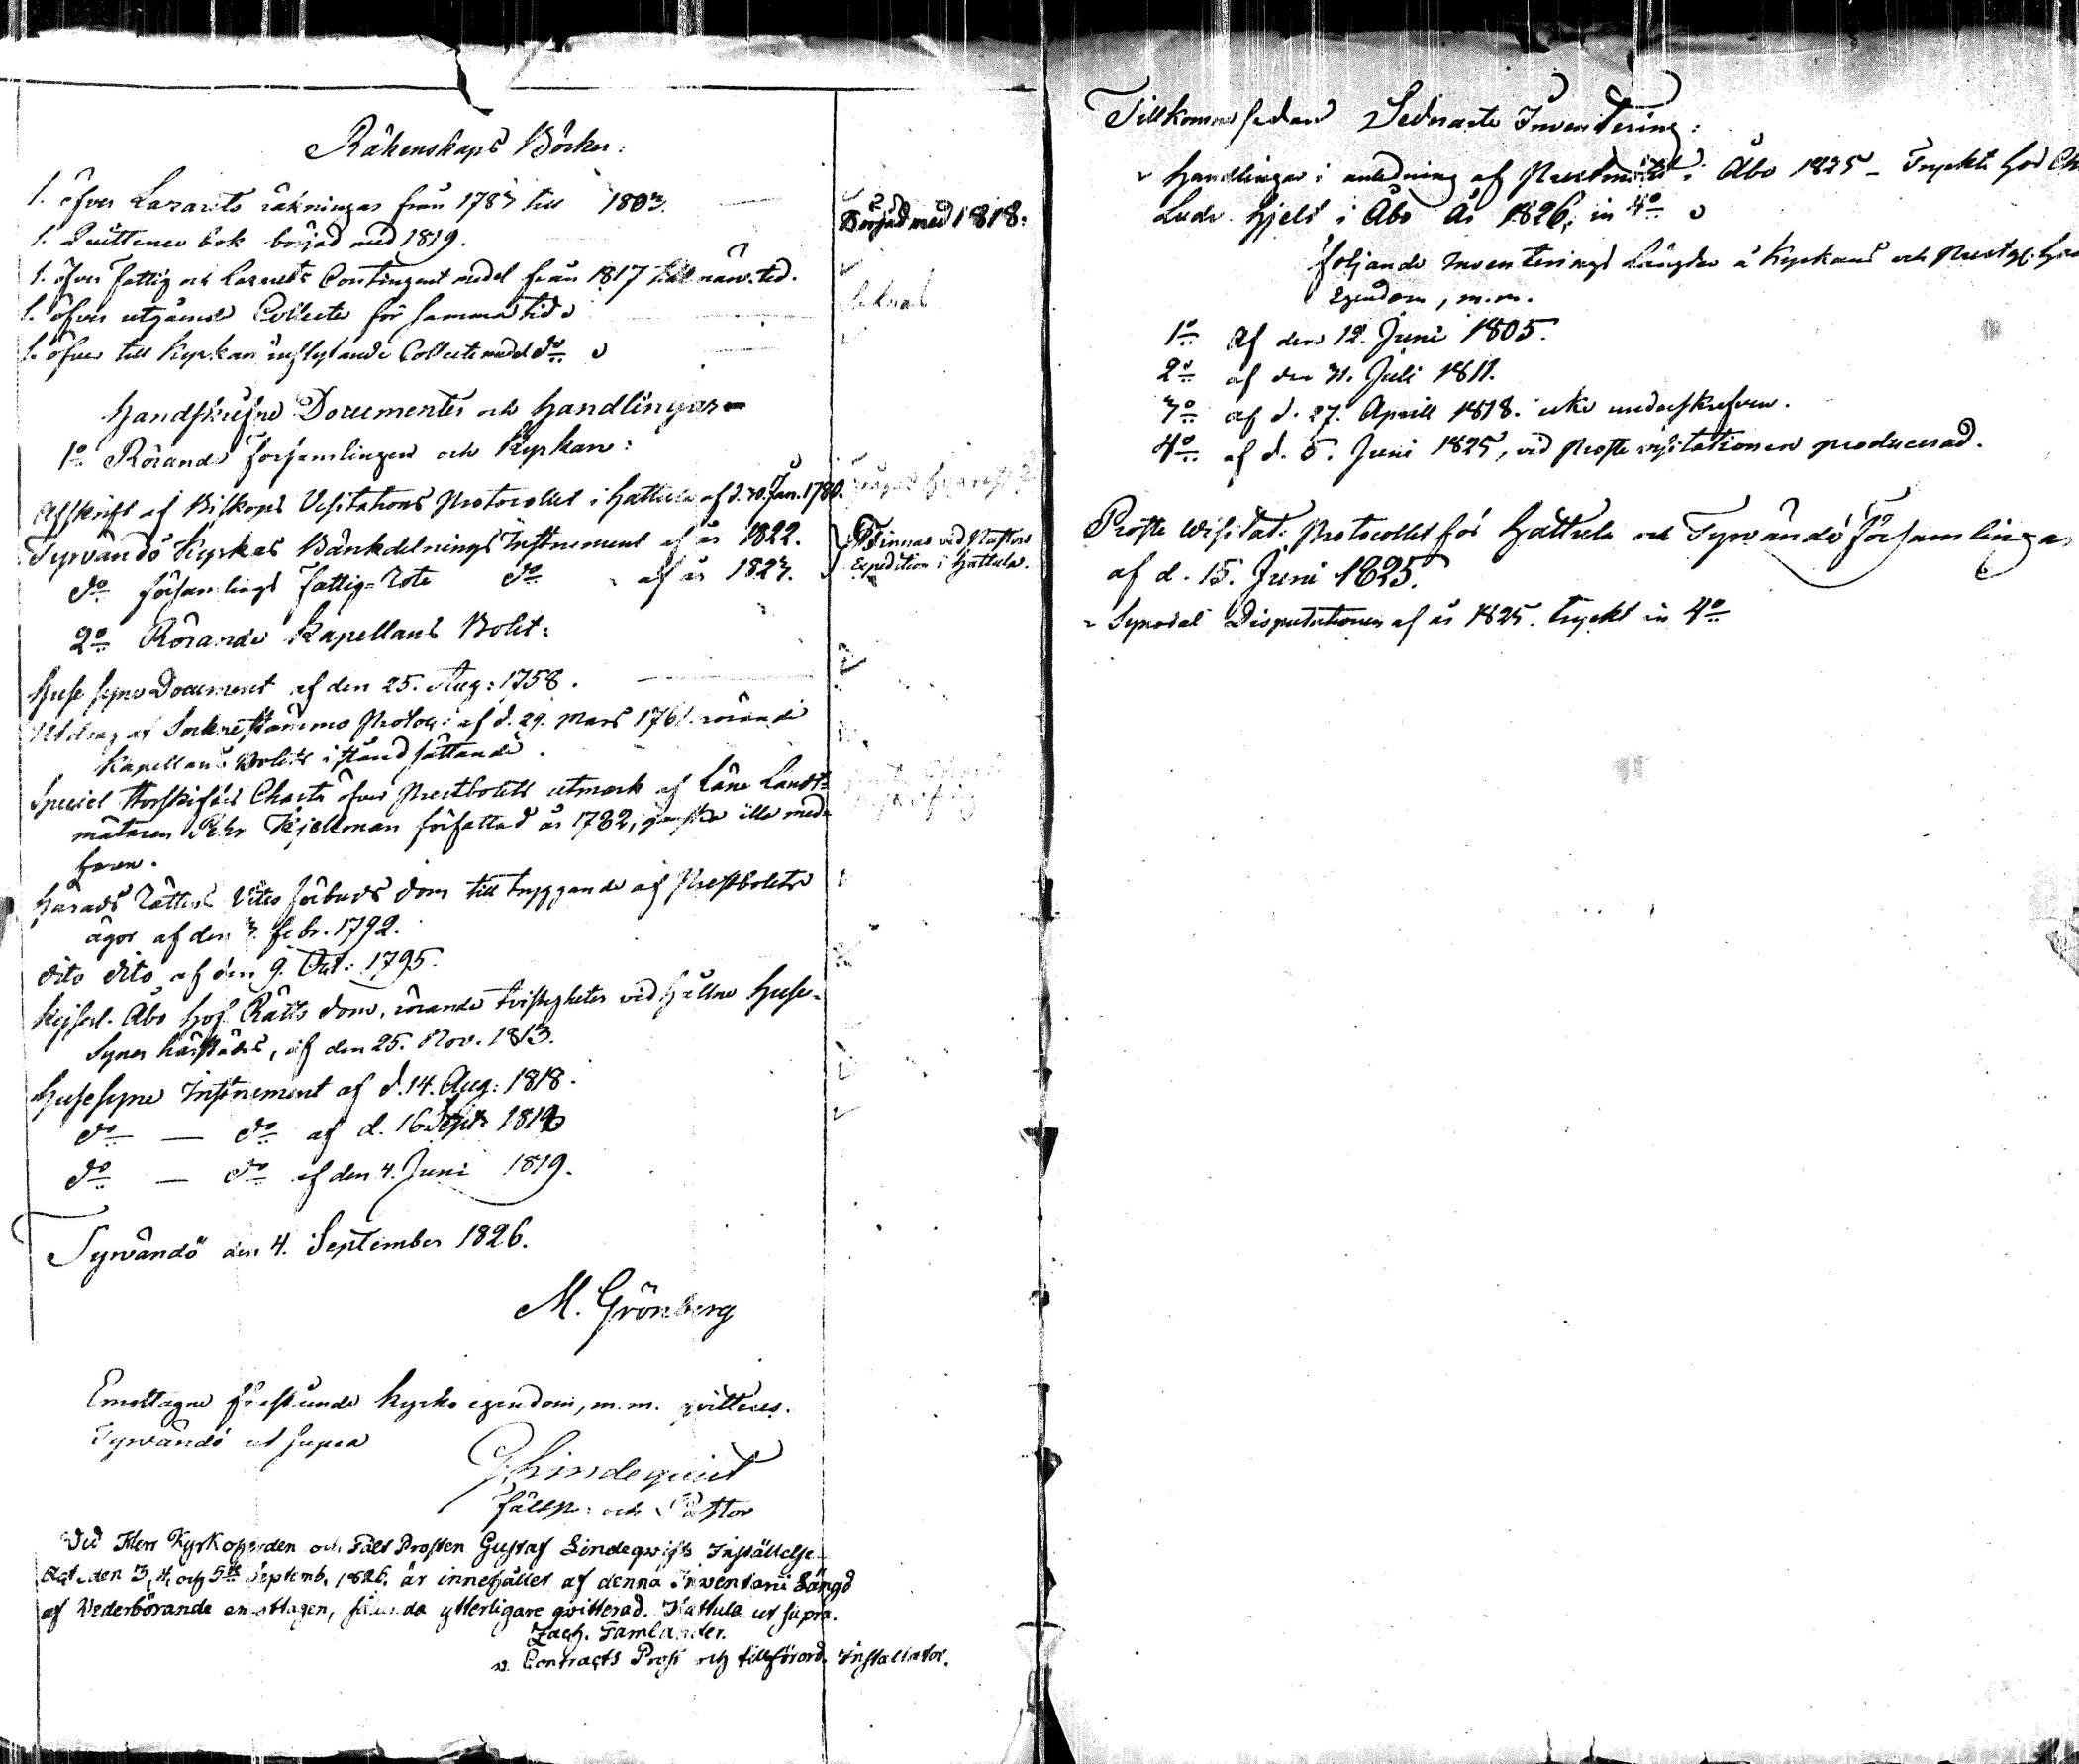 Räkenskaps Böcker:
1. öfver Lazaretts räkningar från 1783 till 1803.
1. Quittence bok börjad med 1819. Börjad med 1818:
1. öfver fattig och Lazaretts Contingent medel från 1817 till närv. tid.
1. öfver utgående Collecter för samma tid
1. öfver till Kyrkan inflytande Collectmedel do
Handskrefne Documenter och Handlingar
1o Rörande församlingen och Kyrkan:
Afskrift af Biskops Visitations Protocollet i Hattula af d. 30. Jan. 1780.
Tyrvändö Kyrkas Bänkdelnings Instrument af år 1822. Finnas vid Pastors
do församlings fattig-Rote do af år 1823. Expedition i Hattula.
2o Rörande Kapellans Bolet:
Husesyns Document af den 25. Aug: 1758.
Utdrag af Sockne Stämmo Protoc: af d. 29. Mars 1761. rörande
Kapellans Bolets iståndsättande.
Speciel Storskifes Charta öfver Prestbolets utmark af Läne Landt-
mätaren Pehr Kjellman författad år 1782, ganska illa med-
faren.
Härads Rättens Vites förbuds dom till tryggande af Prestbolets
ägor af den 3. Febr. 1792.
dito dito af den 9. Oct: 1795.
Kejserl. Åbo Hof Rätts dom, rörande tvistigheter vid hållne Huse-
Syner härstädes, af den 25. Nov. 1813.
Husesyns Instrument af d. 14. Aug: 1818.
do — do af d. 16 Sept.
do — do af den 4. Juni 1819.
Tyrvändö den 4. September 1826.
M. Grönberg
Emottagne förestående Kyrko egendom, m.m. qvitteres.
Tyrvändö ut supra
G. Lindequist
Fältp: och Pastor
Vid Herr Kyrkoherden och Fält Prosten Gustaf Lindeqvists Inställelse
Act den 3, 4, och 5te Septemb. 1826. är innehållet af denna Inventarii Längd
af Vederbörande emottagen, sålunda ytterligare qvitterad. Hattula ut supra.
Zach. Famlander.
v. Contracts Prost och tillförord. Installator.
Tillkomne sedan Sednaste Inventering:
Handlingar i anledning af Prestmötet i Åbo 1825 - Tryckte hos Ch
Ludv. Hjelt i Åbo År 1826, in 4o
följande Inventerings Längder å Kyrkans och Prestg.
Egendom, m.m.
1o Af den 12. Juni 1805.
2o af den 31. Juli 1811.
3o af d. 27. Aprill 1818. icke underskrefven.
4o af d. 5. Juni 1825, vid Proste visitationen producerad.
Proste Visitat: Protocollet för Hattula och Tyrvändö församlingar
af d. 15. Juni 1825.
Synodal Disputationen af år 1825. tryckt in 4o